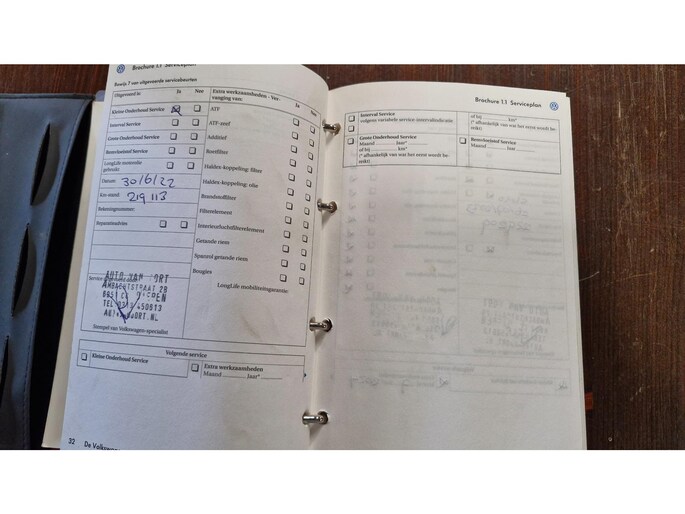 Brochure 1.1 Serviceplan
Bewijs 7 van uitgevoerde servicebeurten
Uitgevoerd is: Ja Nee
Kleine Onderhoud Service
Interval Service
Grote Onderhoud Service
Remvloeistof Service
LongLife motorolie
gebruikt:
Datum: 30/6/22
Km-stand: 219 113
Rekeningnummer:
Reparatieadvies:
Service
AUTO VAN ORT
AMBACHTSTRAAT 28
TEL
450613
ORT.NL
Stempel van Volkswagen-specialist
Extra werkzaamheden - Ver-
vanging van: Ja Nee
ATF
ATF-zeef
Additief
Roetfilter
Haldex-koppeling: filter
Haldex-koppeling: olie
Brandstoffilter
Filterelement
Interieurluchtfilterelement
Getande riem
Spanrol getande riem
Bougies
LongLife mobiliteitsgarantie
Volgende service
Kleine Onderhoud Service
Extra werkzaamheden
Maand Jaar*
32 De Volkswa
Brochure 1.1 Serviceplan
Interval Service
volgens variabele service-intervalindicatie
of bij km*
(* afhankelijk van wat het eerst wordt be-
reikt)
Grote Onderhoud Service
Maand Jaar*
of bij km*
(* afhankelijk van wat het eerst wordt be-
reikt)
Remvloeistof Service
Maand Jaar